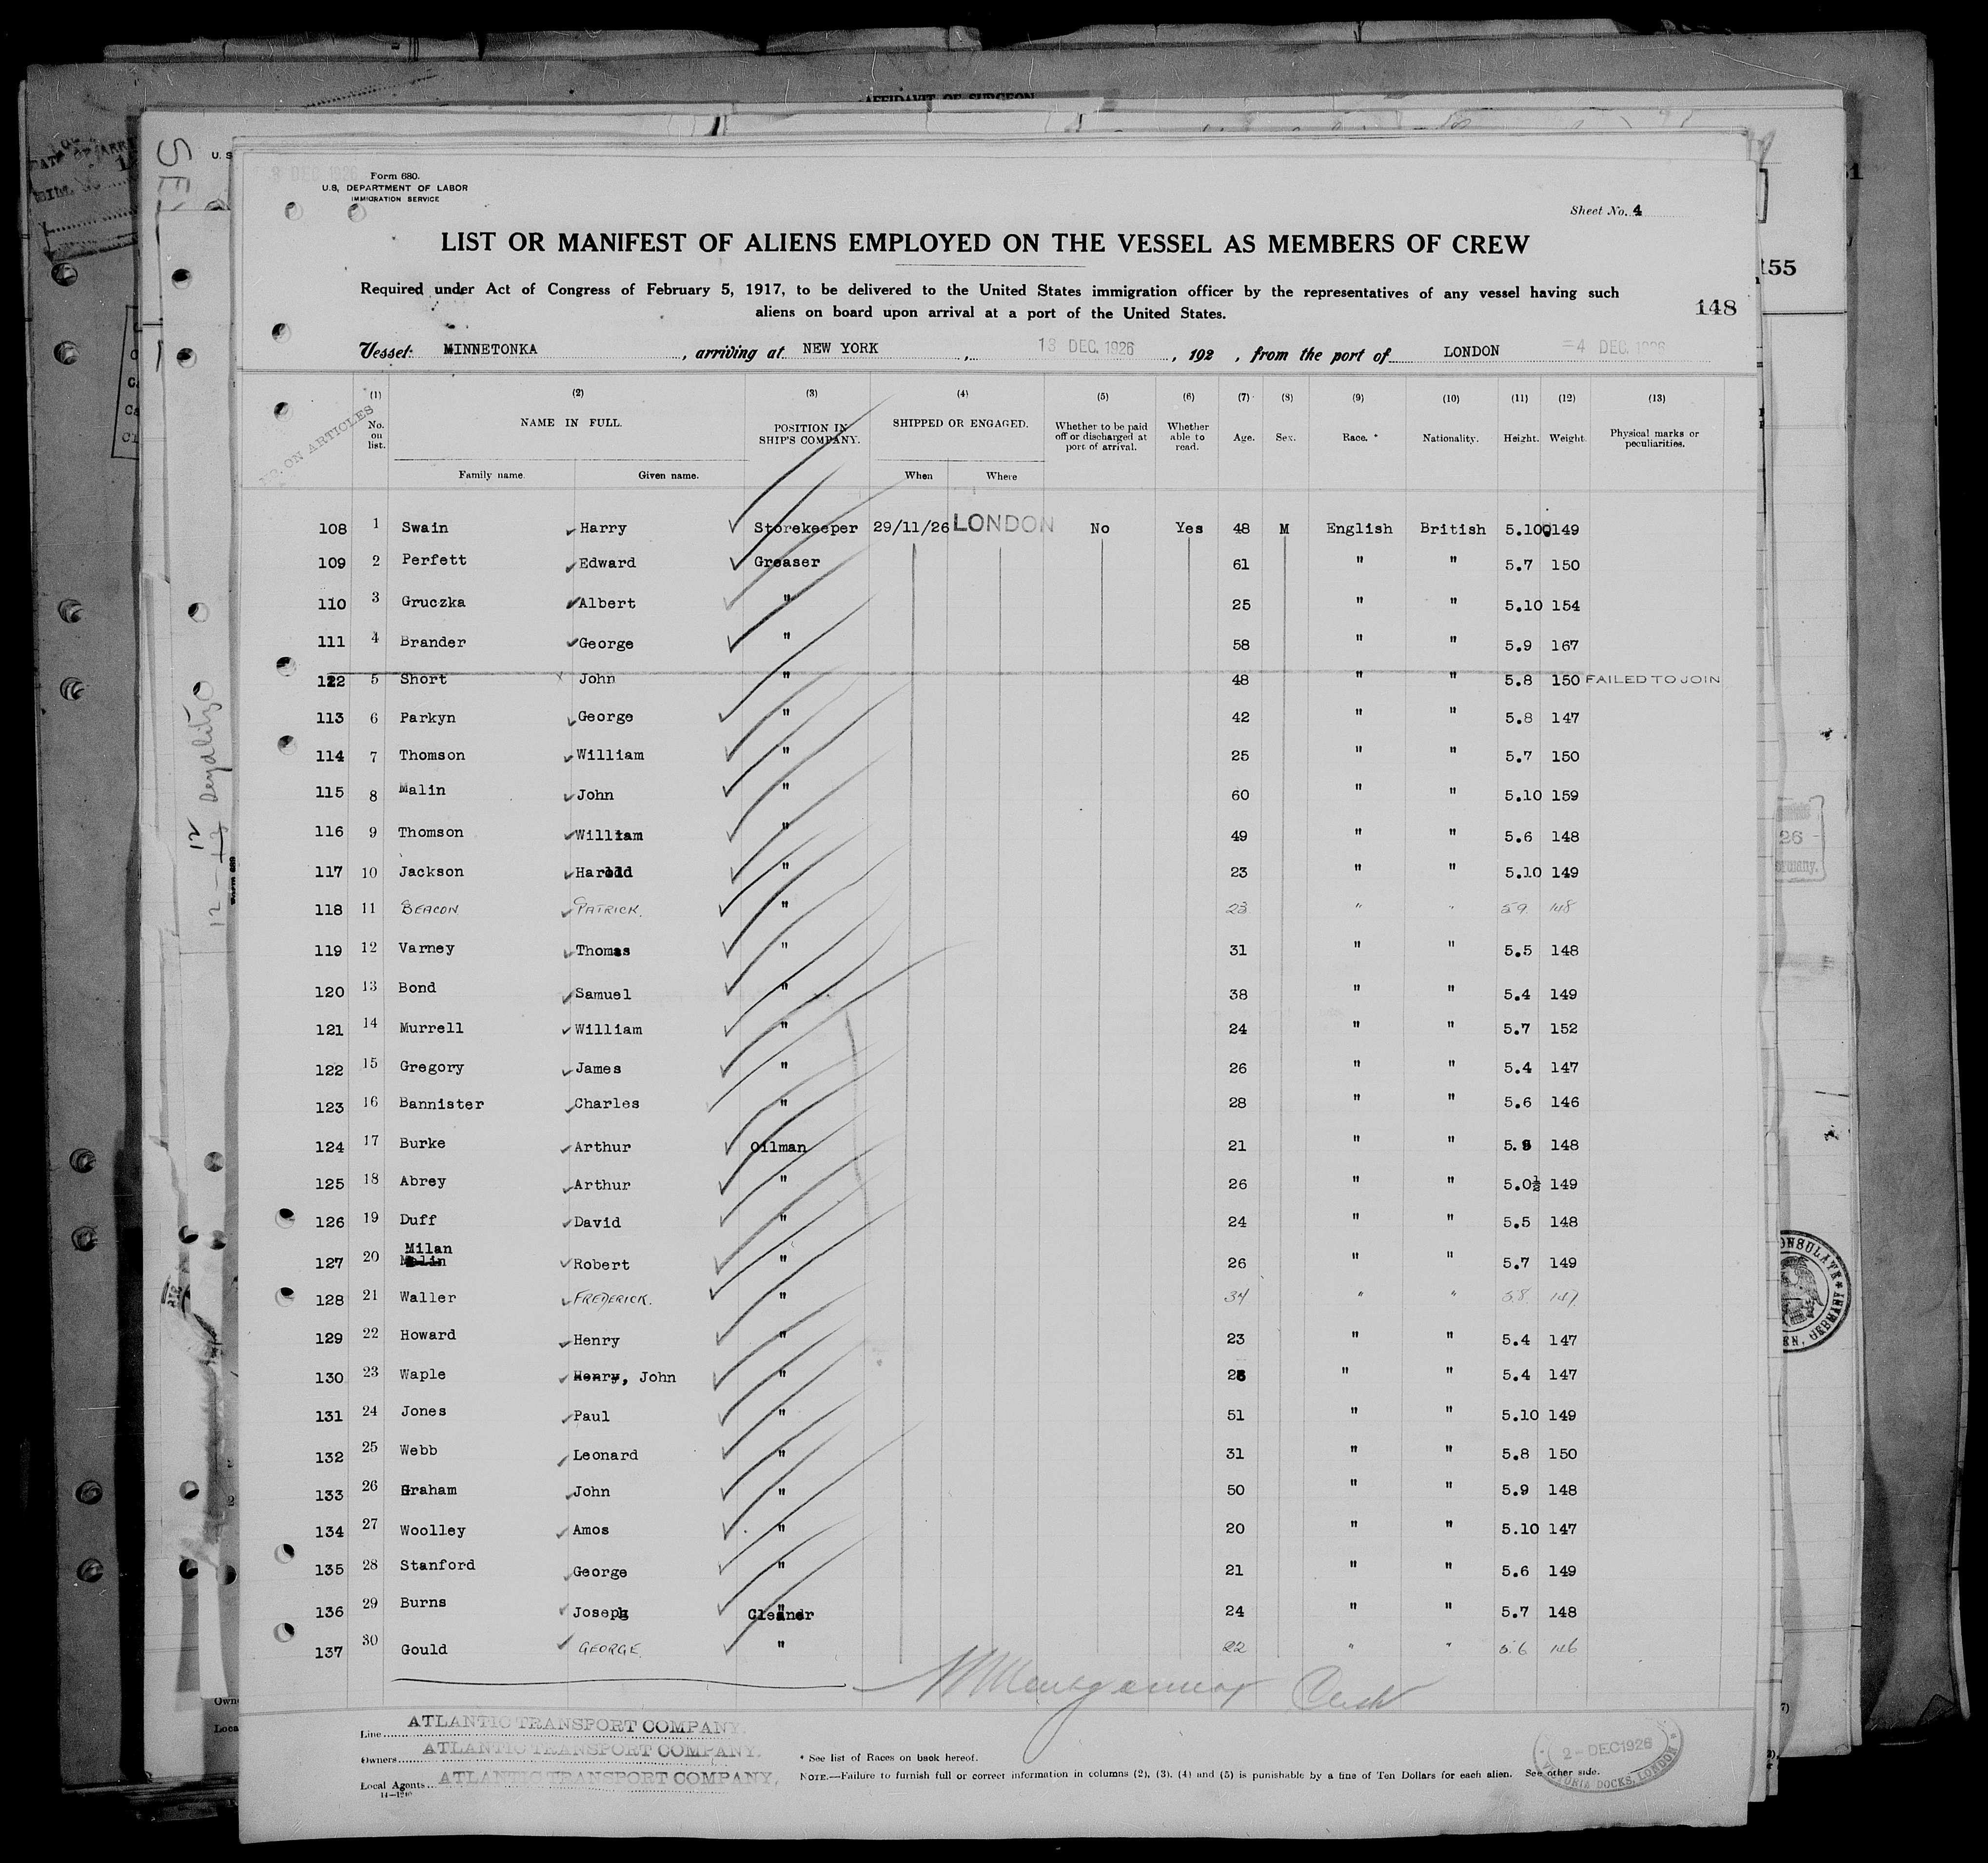 AFFIDAVIT OF SURGEON
Form 680.
U.S. DEPARTMENT OF LABOR
IMMIGRATION SERVICE
Sheet No. 4
LIST OR MANIFEST OF ALIENS EMPLOYED ON THE VESSEL AS MEMBERS OF CREW
Required under Act of Congress of February 5, 1917, to be delivered to the United States immigration officer by the representatives of any vessel having such
aliens on board upon arrival at a port of the United States.
148
155
Vessel: MINNETONKA, arriving at NEW YORK, 13 DEC. 1926, 192 , from the port of LONDON =4 DEC. 1926
NR. ON ARTICLES
(1) (2) (3) (4) (5) (6) (7) (8) (9) (10) (11) (12) (13)
No. on list. NAME IN FULL. POSITION IN SHIP'S COMPANY. SHIPPED OR ENGAGED. Whether to be paid off or discharged at port of arrival. Whether able to read. Age. Sex. Race. * Nationality. Height. Weight. Physical marks or peculiarities.
Family name. Given name. When Where
108 1 Swain Harry Storekeeper 29/11/26 LONDON No Yes 48 M English British 5.10 149
109 2 Perfett Edward Greaser 61 " " 5.7 150
110 3 Gruczka Albert " 25 " " 5.10 154
111 4 Brander George " 58 " " 5.9 167
122 5 Short John " 48 " " 5.8 150 FAILED TO JOIN
113 6 Parkyn George " 42 " " 5.8 147
114 7 Thomson William " 25 " " 5.7 150
115 8 Malin John " 60 " " 5.10 159
116 9 Thomson William " 49 " " 5.6 148
117 10 Jackson Harold " 23 " " 5.10 149
118 11 BEACON PATRICK. " 23 " " 5.9. 148
119 12 Varney Thomas " 31 " " 5.5 148
120 13 Bond Samuel " 38 " " 5.4 149
121 14 Murrell William " 24 " " 5.7 152
122 15 Gregory James " 26 " " 5.4 147
123 16 Bannister Charles " 28 " " 5.6 146
124 17 Burke Arthur Oilman 21 " " 5. 148
125 18 Abrey Arthur " 26 " " 5.0½ 149
126 19 Duff David " 24 " " 5.5 148
Milan
127 20 Malin Robert " 26 " " 5.7 149
128 21 Waller FREDERICK. " 34 " " 5.8. 147
129 22 Howard Henry " 23 " " 5.4 147
130 23 Waple Henry, John " " " 5.4 147
131 24 Jones Paul " 51 " " 5.10 149
132 25 Webb Leonard " 31 " " 5.8 150
133 26 Graham John " 50 " " 5.9 148
134 27 Woolley Amos " 20 " " 5.10 147
135 28 Stanford George " 21 " " 5.6 149
136 29 Burns Joseph Cleaner 24 " " 5.7 148
137 30 Gould GEORGE. " 22 " " 5.6 146
Line ATLANTIC TRANSPORT COMPANY.
Owners ATLANTIC TRANSPORT COMPANY.
Local Agents ATLANTIC TRANSPORT COMPANY.
14—1240
* See list of Races on back hereof.
NOTE.—Failure to furnish full or correct information in columns (2), (3), (4) and (5) is punishable by a fine of Ten Dollars for each alien. See other side.
2 - DEC 1926
VICTORIA DOCKS, LONDON